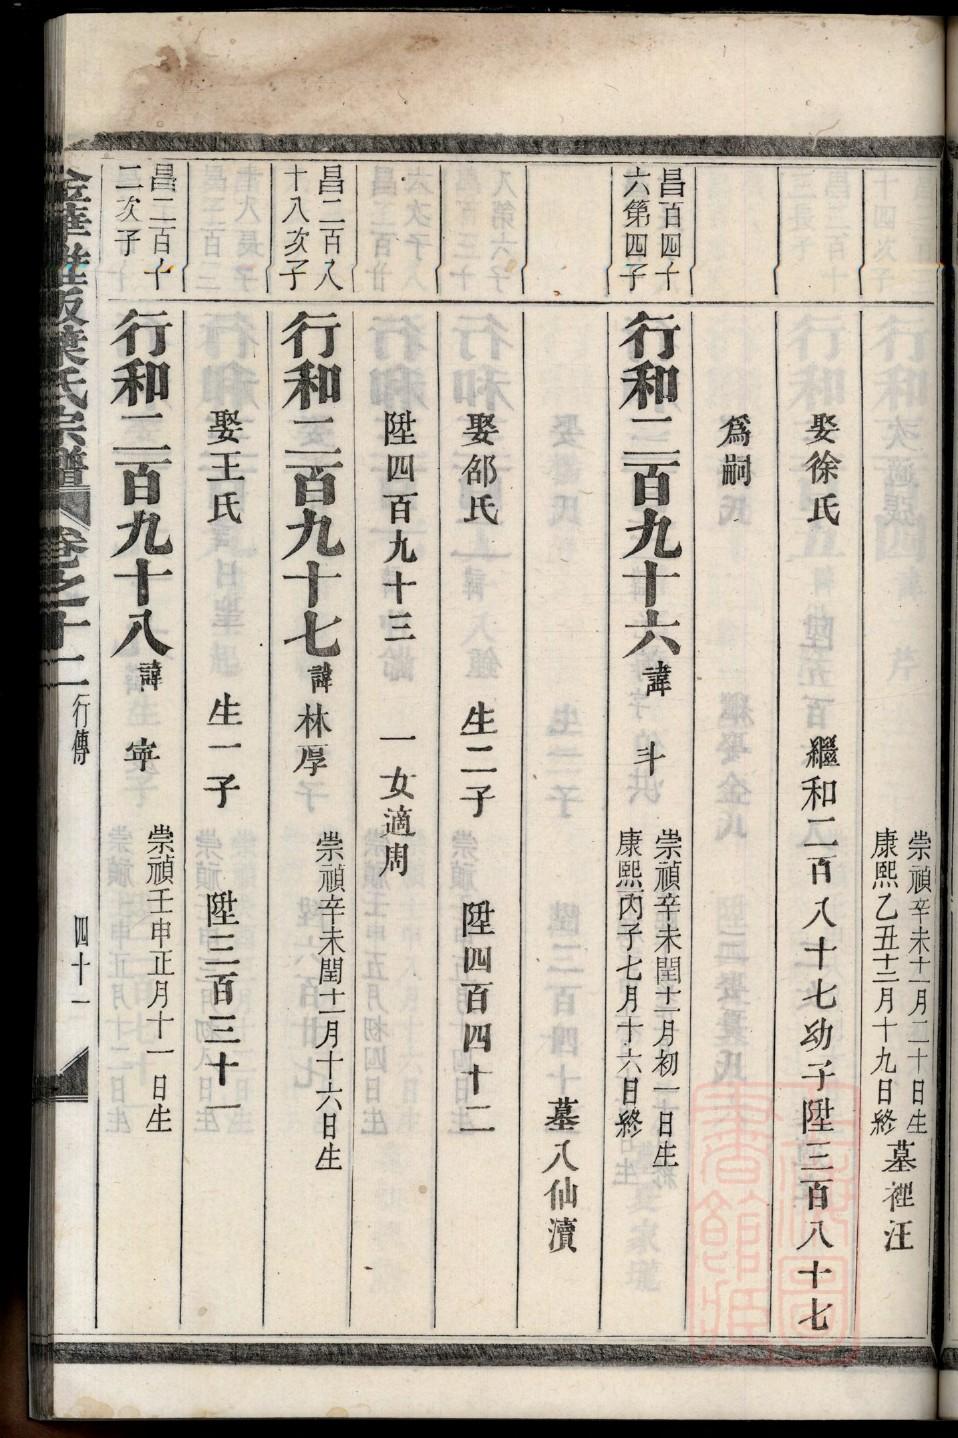 崇禎辛未十一月二十日生
康熙乙丑十二月十九日終
墓裡汪
娶徐氏 繼和二百八十七幼子陞三百八十七
為嗣
昌百四十
六第四子
行和二百九十六 諱 斗
崇禎辛未閏十一月初一日生
康熙丙子七月十六日終
墓八仙瀆
娶郃氏 生二子 陞四百四十二
陞四百九十三 一女適周
昌二百八
十八次子
行和二百九十七 諱 林厚
崇禎辛未閏十一月十六日生
娶王氏 生一子 陞三百三十一
昌二百十
二次子
行和二百九十八 諱 寧
崇禎壬申正月十一日生
葉氏宗譜 卷之十二 行傳 四十一